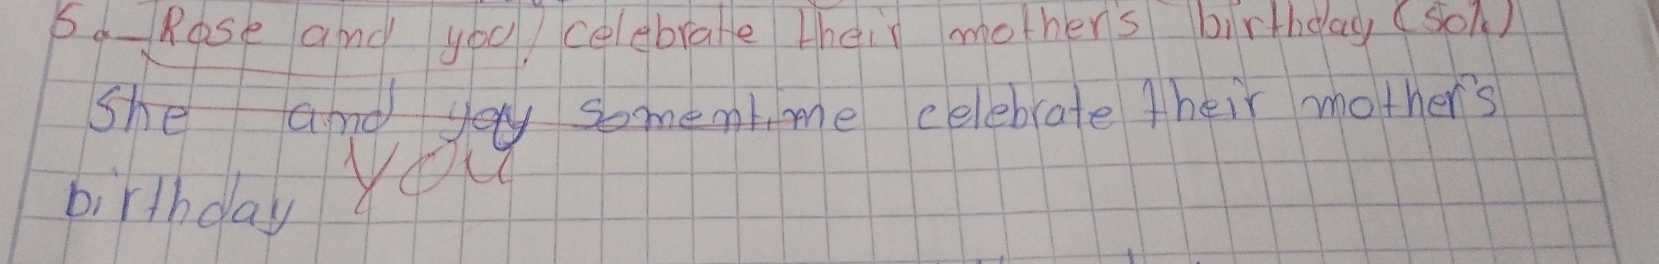 5. Rose and you celebrate their mother's birthday (som)
She and you somentime celebrate their mother's
YOU
birthday